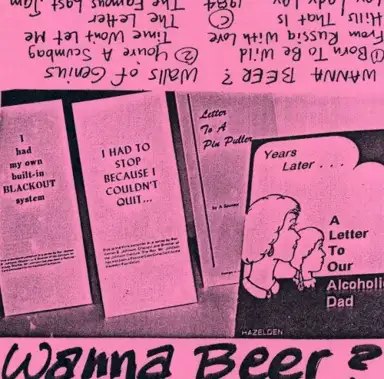 WANNA BEER? Walls of Genius
① Born To Be Wild
From Russia With Love
Hills That Is
Lady Lay
© 1984
② You're A Scumbag
Time Won't Let Me
The Letter
The Famous Last Jam
I
had
my own
built-in
BLACKOUT
system
I HAD TO
STOP
BECAUSE I
COULDN'T
QUIT...
Letter
To A
Pin Puller
Years
Later . . .
A
Letter
To
Our
Alcoholic
Dad
HAZELDEN
Wanna Beer?